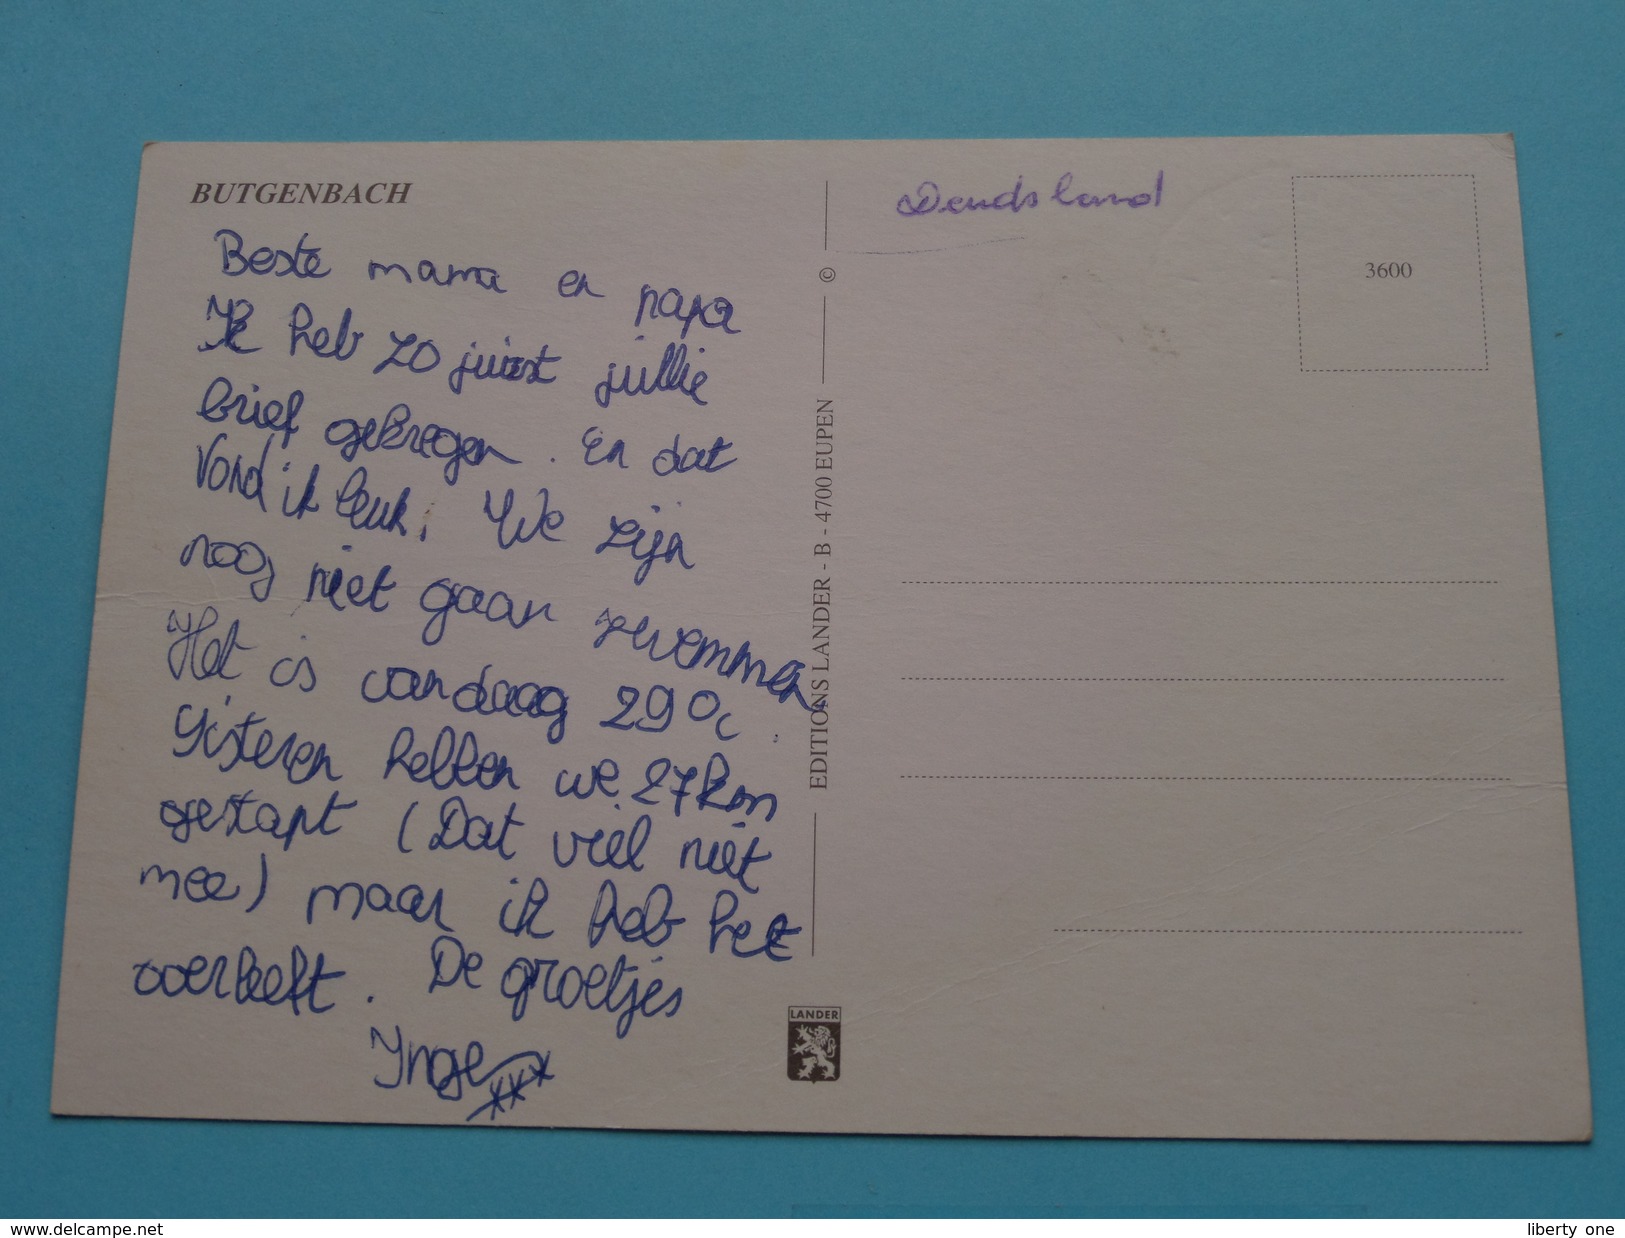 BUTGENBACH
Beste mama en papa
Ik heb zo juist jullie
brief gekregen. En dat
vond ik leuk. We zijn
noog niet gaan zwemmen.
Het is vandaag 29°C.
Gisteren hebben we 27km
gestapt (Dat viel niet
mee) maar ik heb het
overleeft. De groetjes
Inge xxx
EDITIONS LANDER - B - 4700 EUPEN ©
LANDER
Deudsland
3600
www.delcampe.net
liberty one